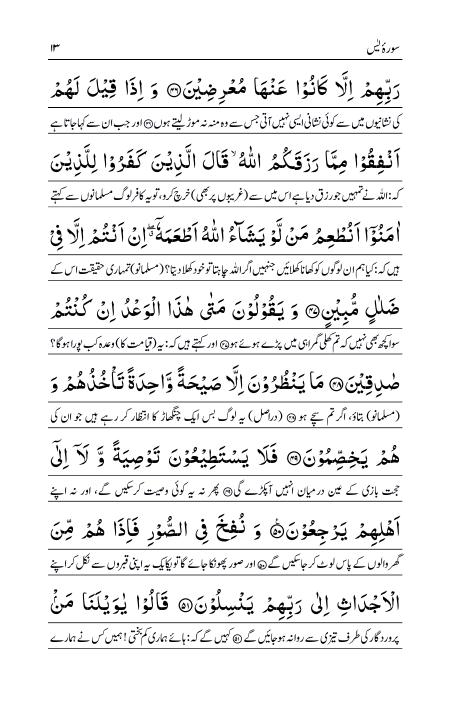 سورۂ یٰس ۱۳
رَبِّهِمْ اِلَّا كَانُوْا عَنْهَا مُعْرِضِيْنَ ﴿۴۶﴾ وَ اِذَا قِيْلَ لَهُمْ
کی نشانیوں میں سے کوئی نشانی ایسی نہیں آتی جس سے وہ منہ نہ موڑ لیتے ہوں ﴿۴۶﴾ اور جب ان سے کہا جاتا ہے
اَنْفِقُوْا مِمَّا رَزَقَكُمُ اللّٰهُ ۙ قَالَ الَّذِيْنَ كَفَرُوْا لِلَّذِيْنَ
کہ: اللہ نے تمہیں جو رزق دیا ہے اس میں سے (غریبوں پر بھی) خرچ کرو، تو یہ کافر لوگ مسلمانوں سے کہتے
اٰمَنُوْۤا اَنُطْعِمُ مَنْ لَّوْ يَشَآءُ اللّٰهُ اَطْعَمَهٗۤ ۖ اِنْ اَنْتُمْ اِلَّا فِيْ
ہیں کہ: کیا ہم ان لوگوں کو کھانا کھلائیں جنہیں اگر اللہ چاہتا تو خود کھلا دیتا؟ (مسلمانو) تمہاری حقیقت اس کے
ضَلٰلٍ مُّبِيْنٍ ﴿۴۷﴾ وَ يَقُوْلُوْنَ مَتٰى هٰذَا الْوَعْدُ اِنْ كُنْتُمْ
سوا کچھ بھی نہیں کہ تم کھلی گمراہی میں پڑے ہوئے ہو ﴿۴۷﴾ اور کہتے ہیں کہ: یہ (قیامت کا) وعدہ کب پورا ہوگا؟
صٰدِقِيْنَ ﴿۴۸﴾ مَا يَنْظُرُوْنَ اِلَّا صَيْحَةً وَّاحِدَةً تَاْخُذُهُمْ وَ
(مسلمانو) بتاؤ، اگر تم سچے ہو ﴿۴۸﴾ (دراصل) یہ لوگ بس ایک چنگھاڑ کا انتظار کر رہے ہیں جو ان کی
هُمْ يَخِصِّمُوْنَ ﴿۴۹﴾ فَلَا يَسْتَطِيْعُوْنَ تَوْصِيَةً وَّ لَاۤ اِلٰۤى
حجت بازی کے عین درمیان انہیں آپکڑے گی ﴿۴۹﴾ پھر نہ یہ کوئی وصیت کرسکیں گے، اور نہ اپنے
اَهْلِهِمْ يَرْجِعُوْنَ ﴿۵۰﴾ وَ نُفِخَ فِي الصُّوْرِ فَاِذَا هُمْ مِّنَ
گھر والوں کے پاس لوٹ کر جاسکیں گے ﴿۵۰﴾ اور صور پھونکا جائے گا تو یکایک یہ اپنی قبروں سے نکل کر اپنے
الْاَجْدَاثِ اِلٰى رَبِّهِمْ يَنْسِلُوْنَ ﴿۵۱﴾ قَالُوْا يٰوَيْلَنَا مَنْۢ
پروردگار کی طرف تیزی سے روانہ ہوجائیں گے ﴿۵۱﴾ کہیں گے کہ: ہائے ہماری کم بختی! ہمیں کس نے ہمارے